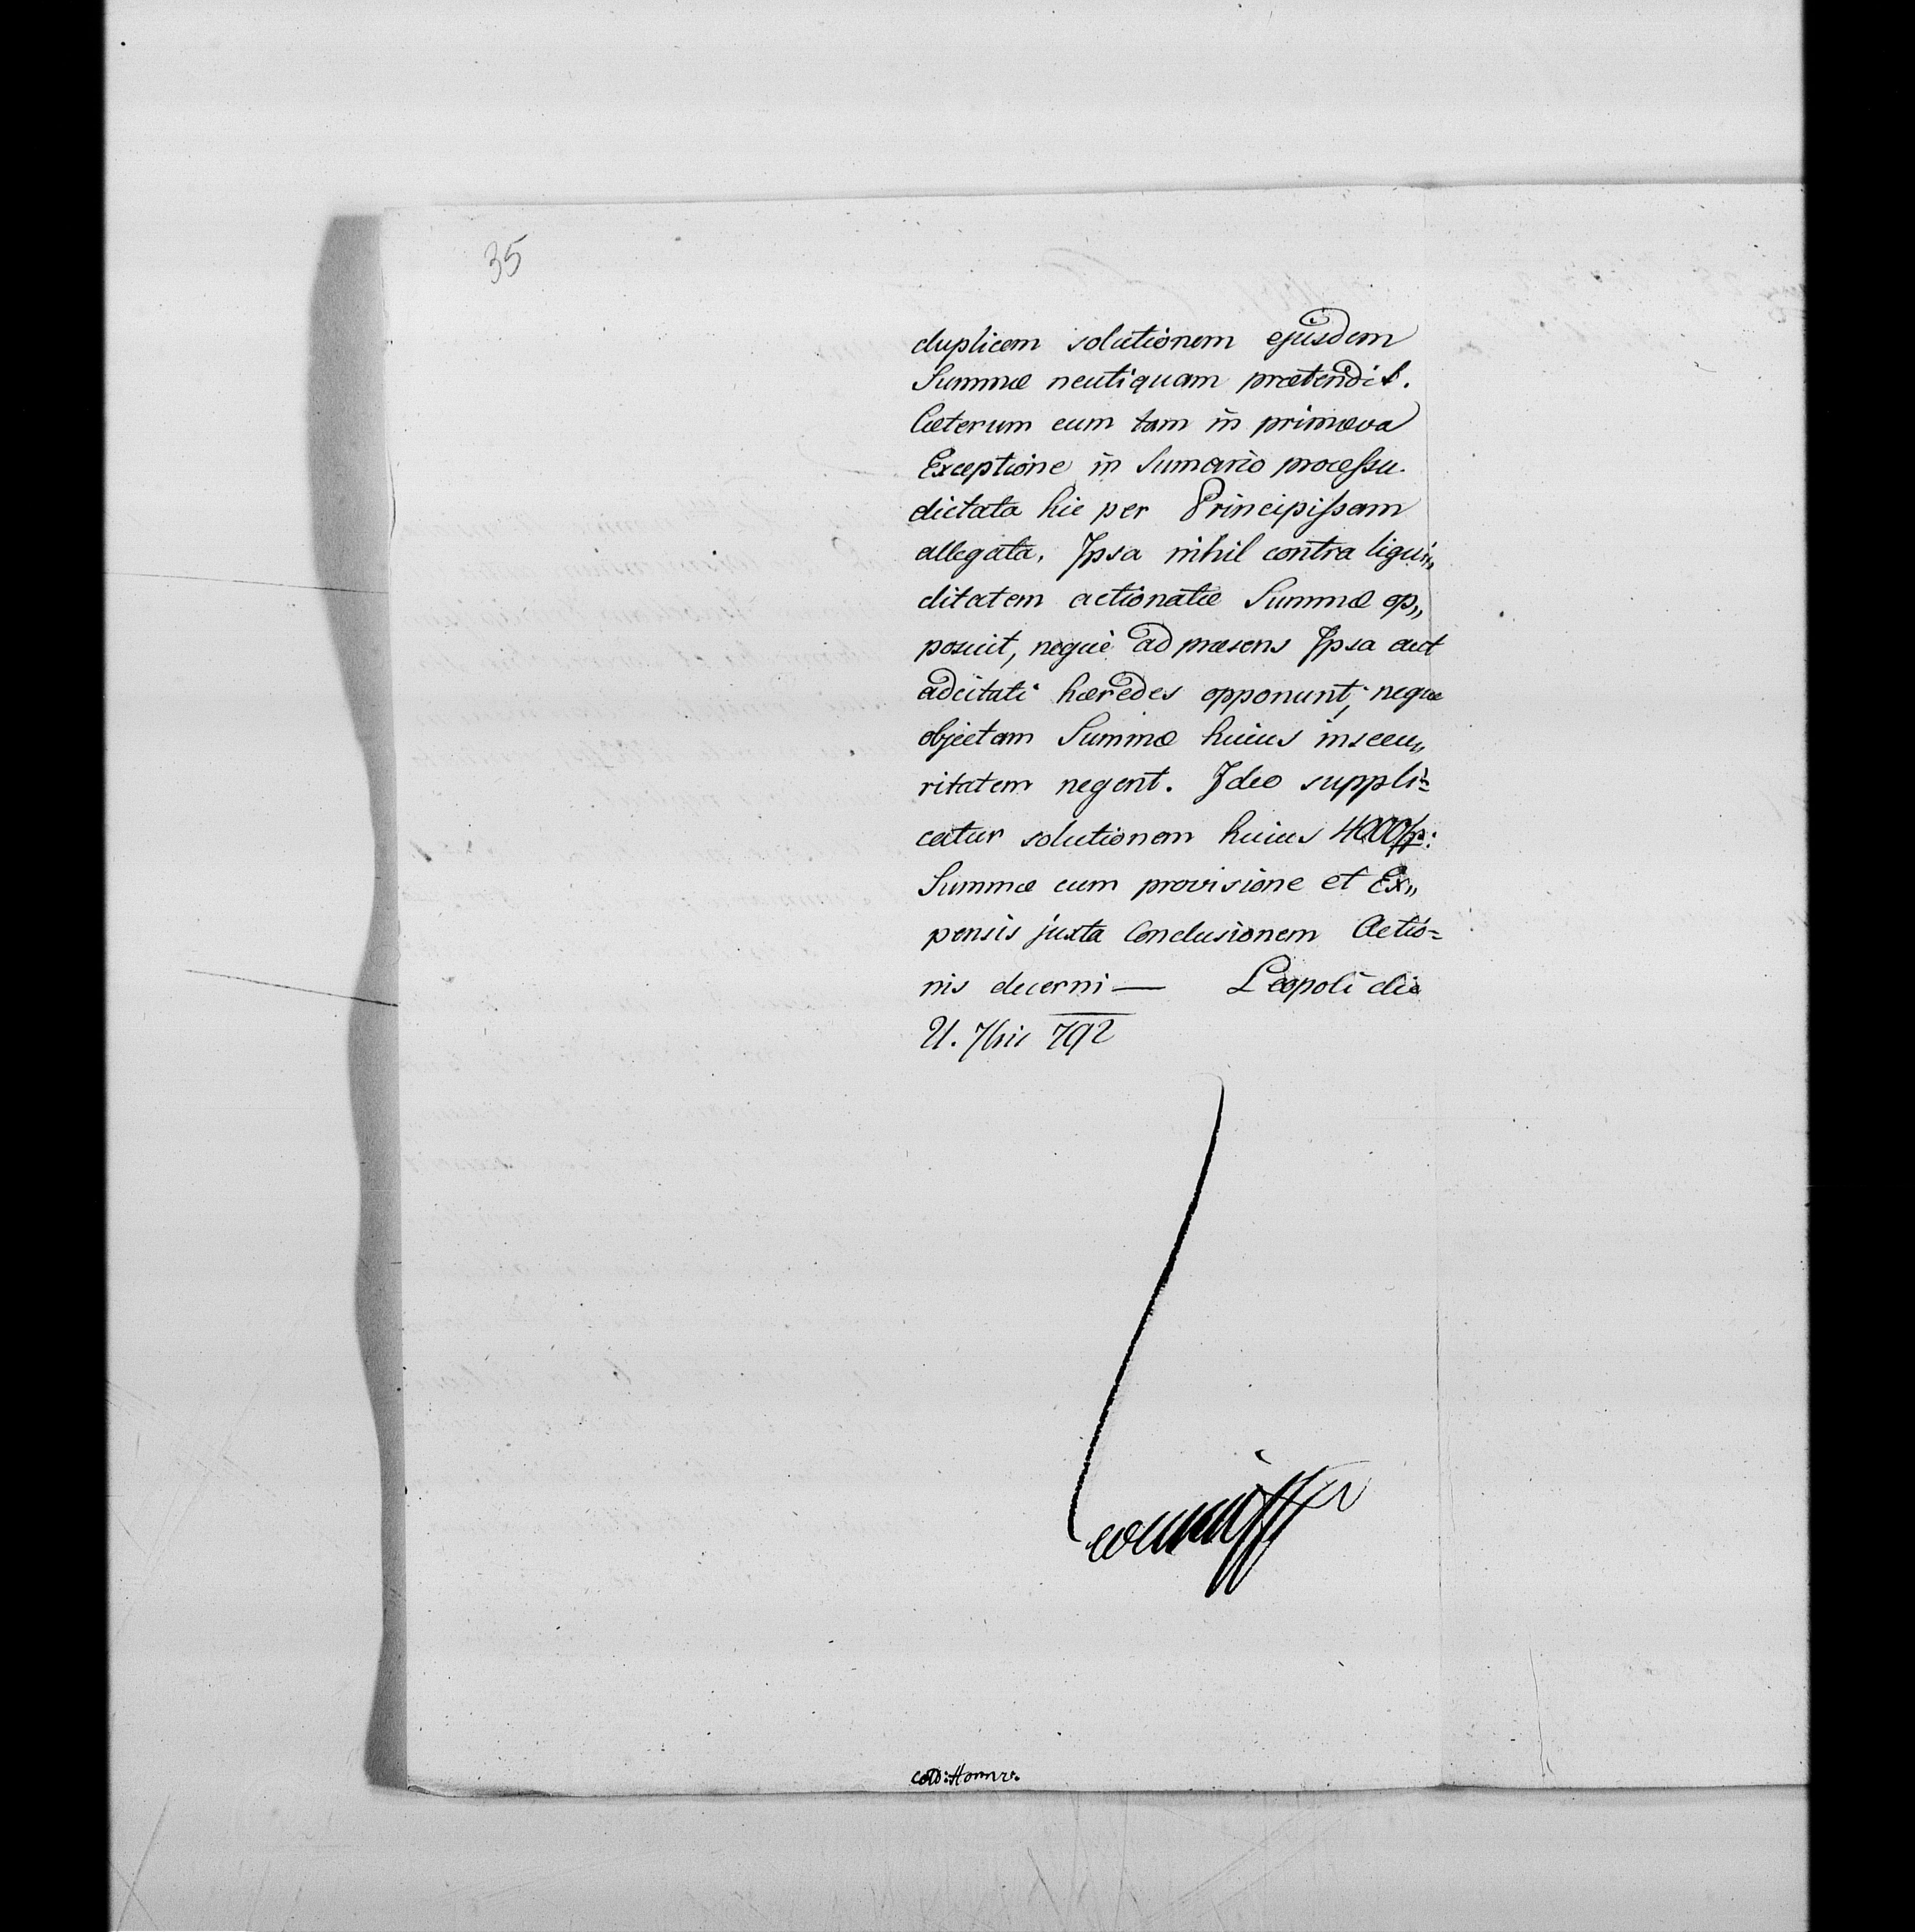 35
duplicem solutionem ejusdem
Summæ neutiquam prætendit.
Cæterum cum tam in primæva
Exceptione in Sumario processu
dictata hic per Principissam
allegata, Ipsa nihil contra liqui„
ditatem actionatæ Summæ op„
posuit, neque ad præsens Ipsa aut
adcitati hæredes opponunt, neque
objectam Summæ huius insecu„
ritatem negent. Ideo suppli=
catur solutionem huius 4000 fp:
Summæ cum provisione et Ex„
pensis juxta Conclusionem Actio=
nis decerni — Leopoli die
21. 7bris 792